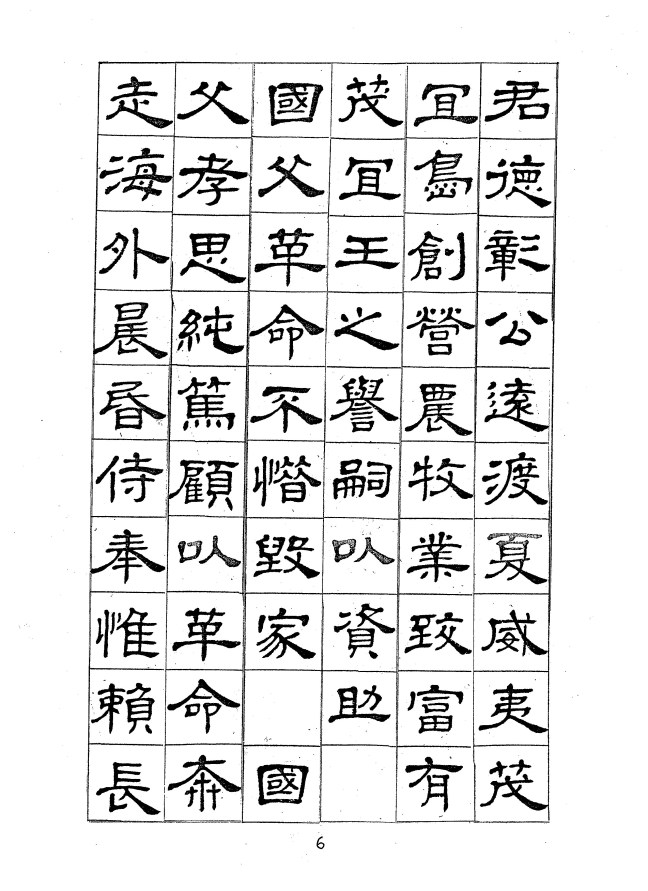 君德彰公遠渡夏威夷茂
宜島創營農牧業致富有
茂宜王之譽嗣以資助
國父革命不惜毀家　國
父孝思純篤顧以革命奔
走海外晨昏侍奉惟賴長
6